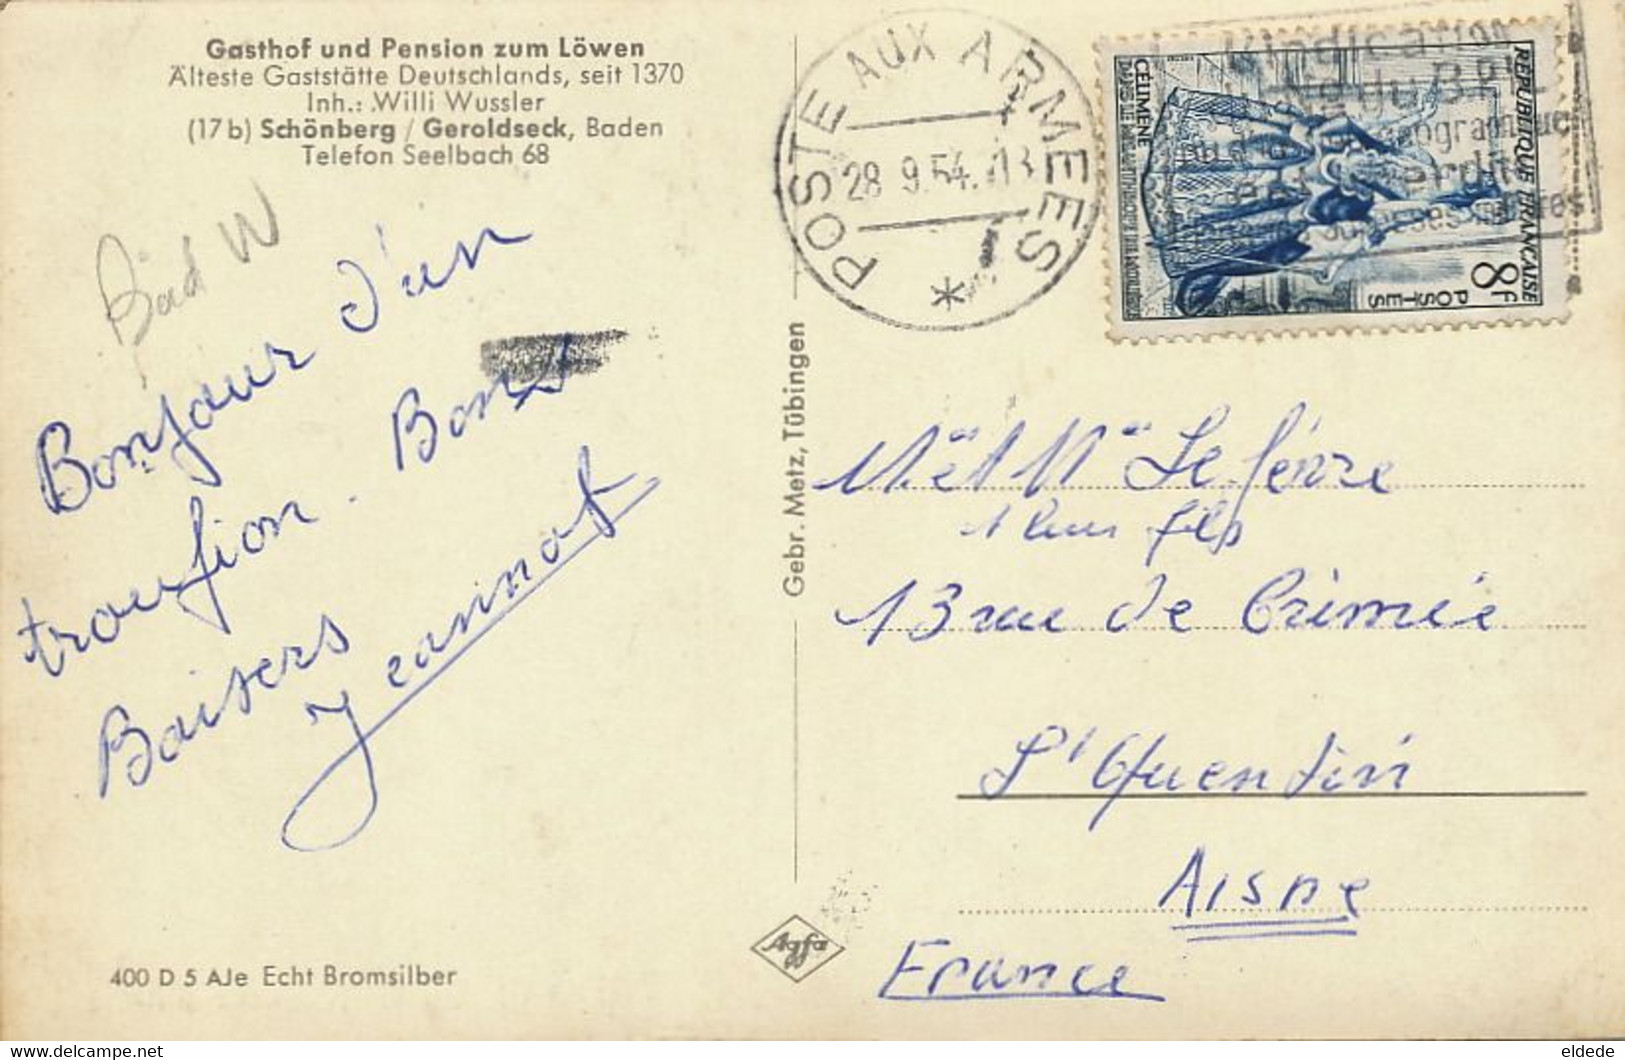 Gasthof und Pension zum Löwen
Älteste Gaststätte Deutschlands, seit 1370
Inh.: Willi Wussler
(17 b) Schönberg / Geroldseck, Baden
Telefon Seelbach 68
Bad W
Bonjour d'un
troufion. Bons
Baisers
Jeannot
400 D 5 AJe Echt Bromsilber
Gebr. Metz, Tübingen
Agfa
POSTE AUX ARMEES
28 9.54. 
*
REPUBLIQUE FRANÇAISE
8F
POSTES
CÉLIMÈNE
DANS LE MISANTHROPE DE MOLIÈRE
L'indication
du B.P.M
est interdite
Mr et Mme Lefévre
& leur fils
13 rue de Crimée
St Quentin
Aisne
France
eldede
www.delcampe.net